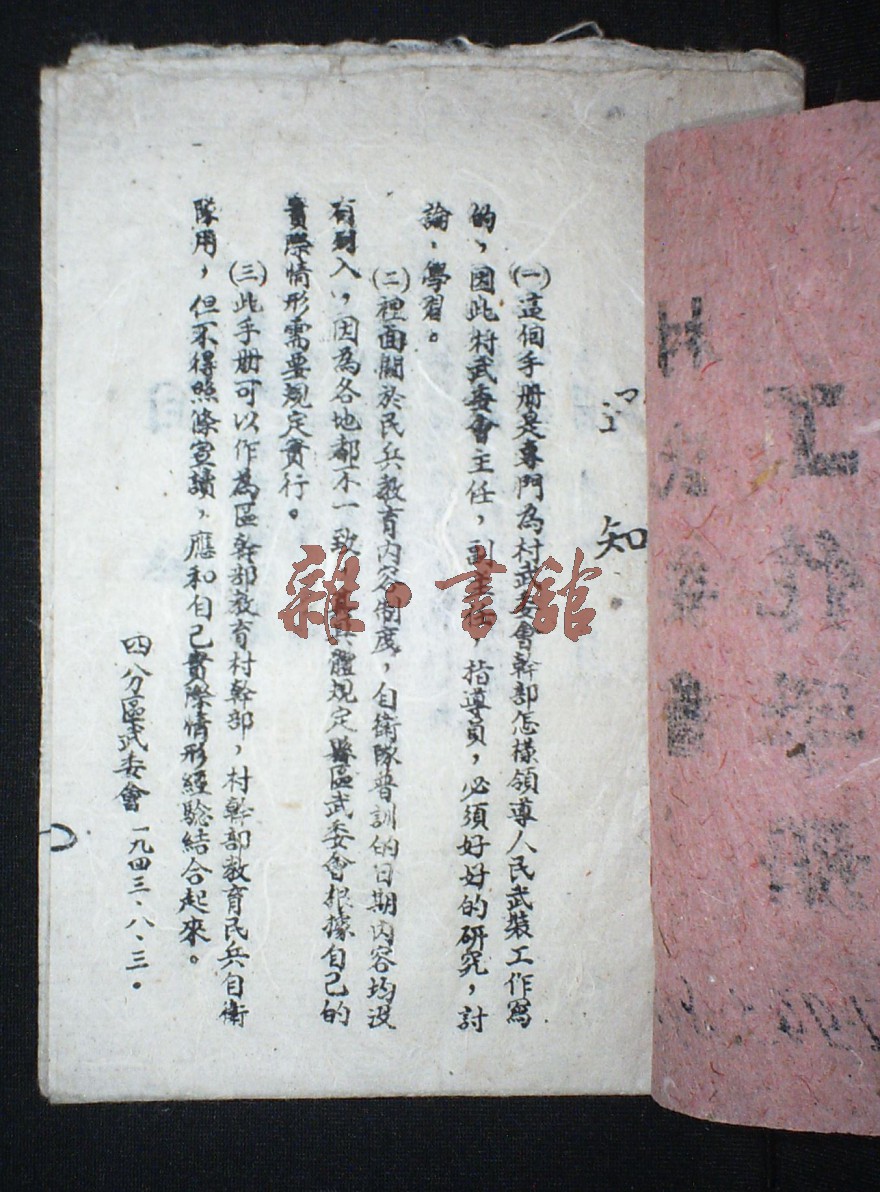 通知
㈠這個手册是專門為村武委會幹部怎樣領導人民武裝工作寫
的，因此村武委會主任，副主任，指導員，必須好好的研究，討
論，學習。
㈡裡面關於民兵教育内容制度，自衛隊普訓的日期内容均没
有列入，因為各地都不一致，其具體規定縣區武委會根據自己的
實際情形需要規定實行。
㈢此手册可以作為區幹部教育村幹部，村幹部教育民兵自衛
隊用，但不得照條宣讀，應和自己實際情形經驗結合起來。
四分區武委會 一九四三、八、三。
雜·書館
工作手册